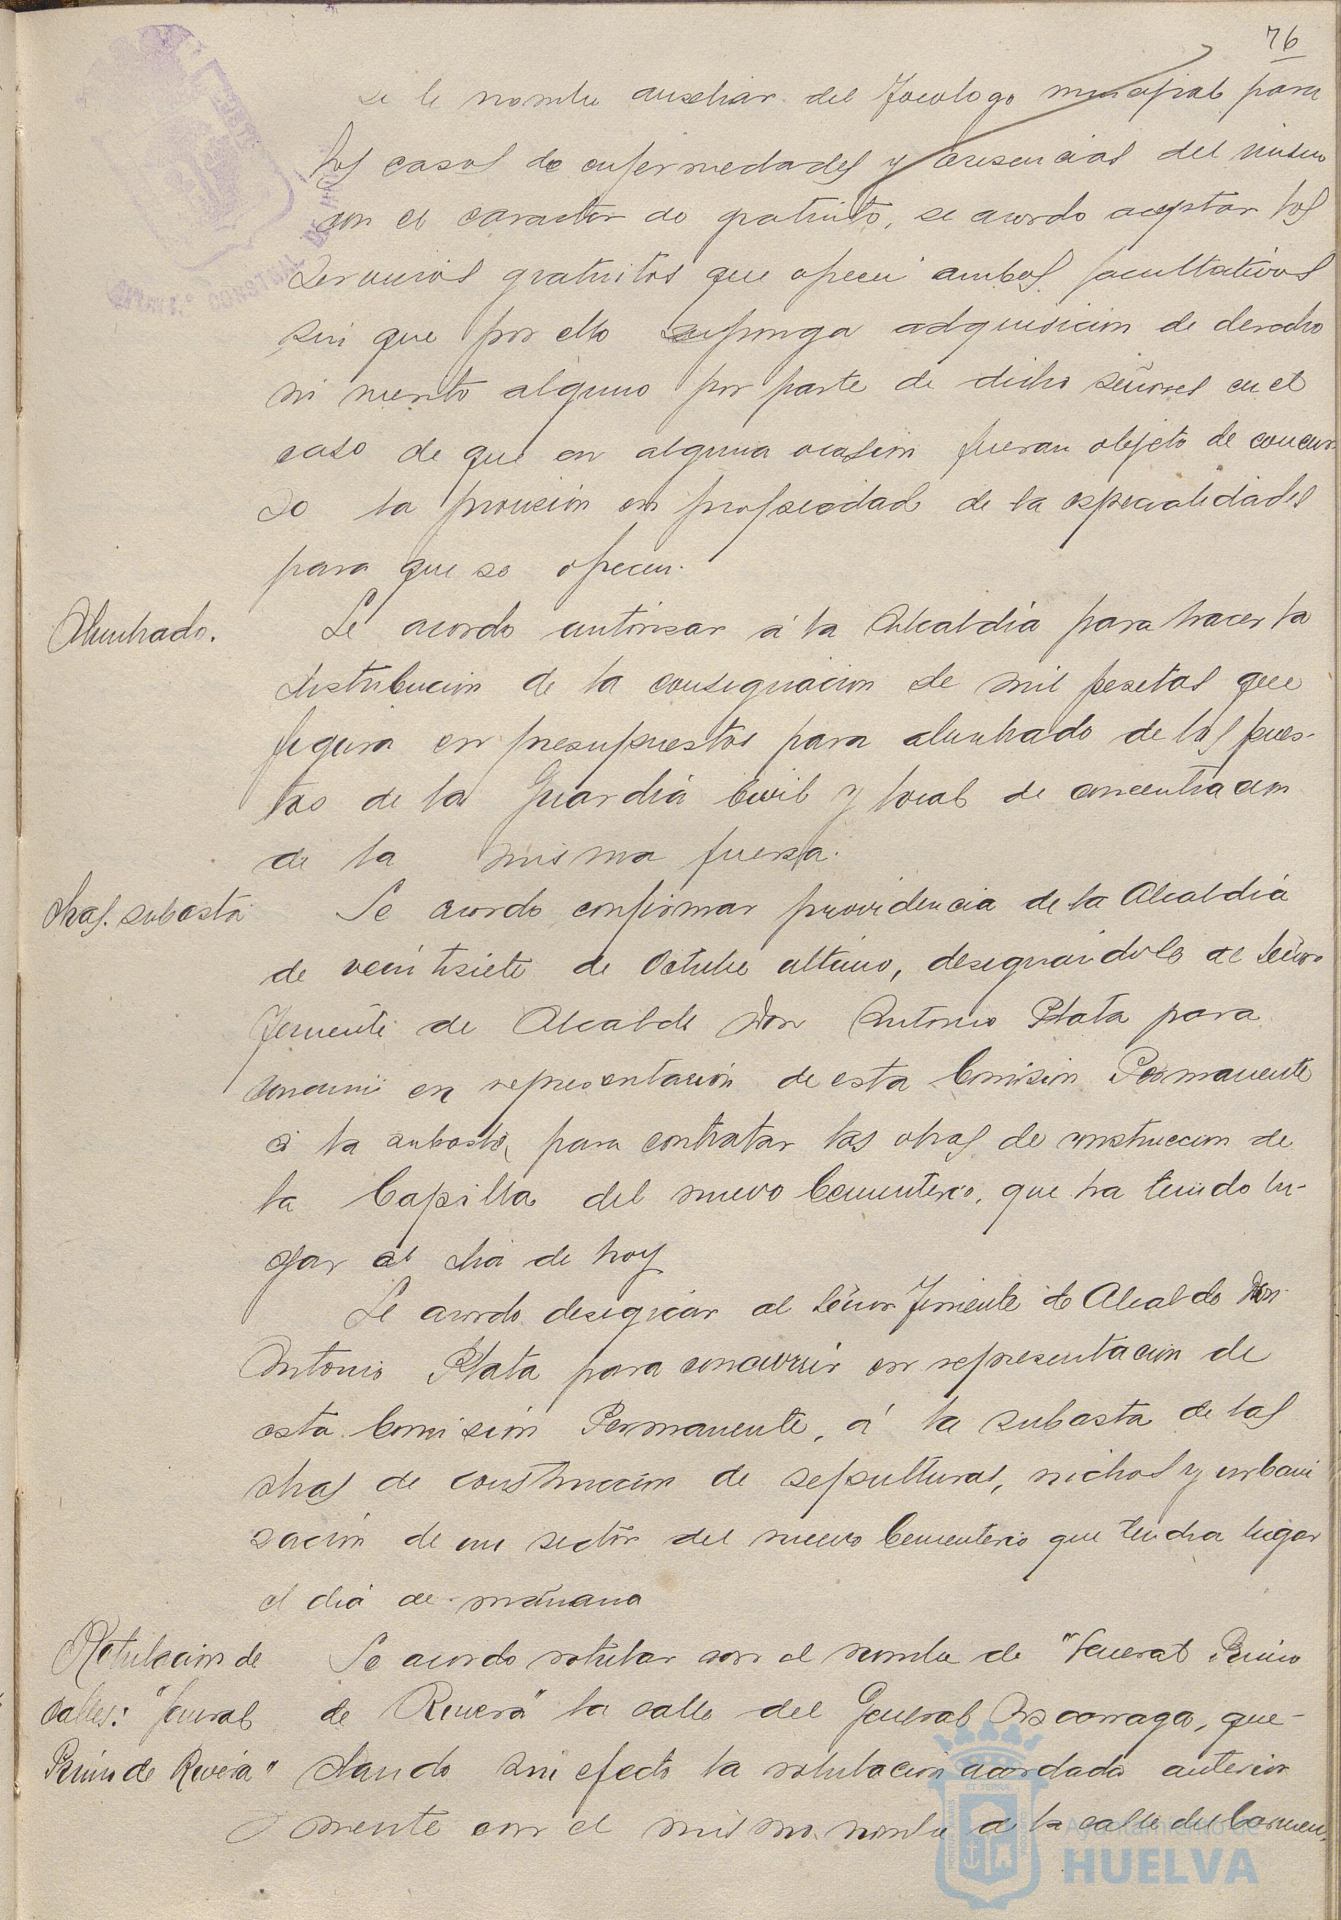 76
se le nombre auxiliar del Tocologo municipal para
los casos de enfermedades y ausencias del mismo
con el caracter de gratuito, se acordo aceptar los
servicios gratuitos que ofrecen ambos facultativos
sin que por ello suponga adquisicion de derecho
ni merito alguno por parte de dicho señores en el
caso de que en alguna ocasion fueran objeto de concur-
so la provision en propiedad de la especialidades
para que se ofrecen.
Alumbrado.
Se acordo autorisar á la Alcaldia para hacer la
distribucion de la consignacion de mil pesetas que
figura en presupuestos para alumbrado de los pues-
tos de la Guardia Civil y local de concentracion
de la misma fuersa.
Obras. subasta
Se acordo confirmar providencia de la Alcaldia
de veintisiete de Octubre ultimo, designándolo al Señor
Teniente de Alcalde Don Antonio Plata para
concurrir en representación de esta Comision Permanente
á la subasta para contratar las obras de construccion de
la Capilla del nuevo Cementerio, que ha tenido lu-
gar el dia de hoy
Se acordo designar al Señor Teniente de Alcalde Don
Antonio Plata para concurrir en representacion de
esta Comisión Permanente, á la subasta de las
obras de construccion de sepulturas, nichos y urbani
sación de un sector del nuevo Cementerio que tendra lugar
el dia de mañana
Rotulacion de
calles: "General
Primo de Rivera"
Se acordo rotular con el nombre de "General Primo
de Rivera" la calle del General Ascarraga, que-
dando sin efecto la rotulacion acordada anterior
mente con el mismo nombre a la calle del Carmen,
Ayuntamiento de
HUELVA